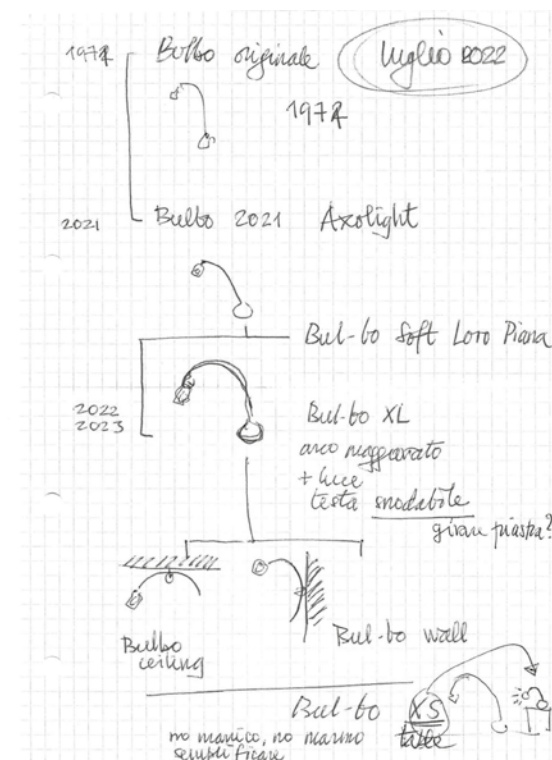 1974 Bulbo originale luglio 2022
1974
2021 Bulbo 2021 Axolight
Bul-bo Soft Loro Piana
2022
2023
Bul-bo XL
arco maggiorato
+ luce
testa snodabile
girare piastra?
Bulbo
ceiling
Bul-bo wall
Bul-bo XS
table
no manico, no marmo
semplificare